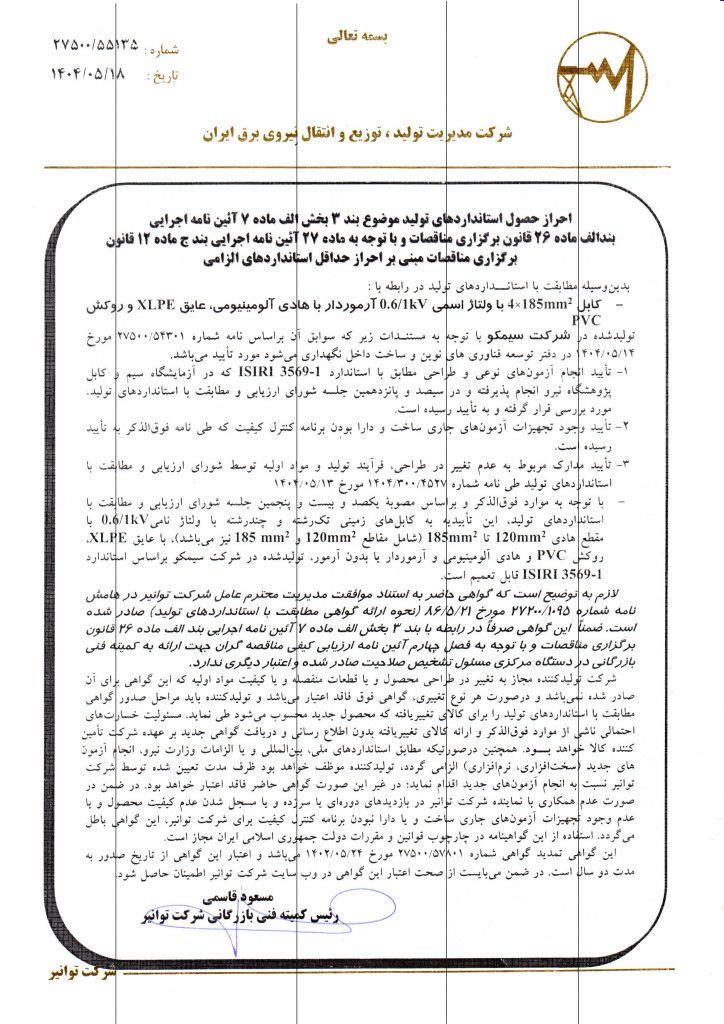 بسمه تعالی
شماره : ۲۷۵۰۰/۵۵۱۳۵
تاریخ : ۱۴۰۴/۰۵/۱۸
شرکت مدیریت تولید ، توزیع و انتقال نیروی برق ایران
احراز حصول استانداردهای تولید موضوع بند ۳ بخش الف ماده ۷ آئین نامه اجرایی
بندالف ماده ۲۶ قانون برگزاری مناقصات و با توجه به ماده ۲۷ آئین نامه اجرایی بند ج ماده ۱۲ قانون
برگزاری مناقصات مبنی بر احراز حداقل استانداردهای الزامی
بدین‌وسیله مطابقت با استانداردهای تولید در رابطه با :
– کابل 4×185mm² با ولتاژ اسمی 0.6/1kV آرموردار با هادی آلومینیومی، عایق XLPE و روکش
PVC
تولیدشده در شرکت سیمکو با توجه به مستندات زیر که سوابق آن براساس نامه شماره ۲۷۵۰۰/۵۴۳۰۱ مورخ
۱۴۰۴/۰۵/۱۴ در دفتر توسعه فناوری های نوین و ساخت داخل نگهداری می‌شود مورد تأیید می‌باشد.
۱- تأیید انجام آزمون‌های نوعی و طراحی مطابق با استاندارد ISIRI 3569-1 که در آزمایشگاه سیم و کابل
پژوهشگاه نیرو انجام پذیرفته و در سیصد و پانزدهمین جلسه شورای ارزیابی و مطابقت با استانداردهای تولید.
مورد بررسی قرار گرفته و به تأیید رسیده است.
۲- تأیید وجود تجهیزات آزمون‌های جاری ساخت و دارا بودن برنامه کنترل کیفیت که طی نامه فوق‌الذکر به تأیید
رسیده است.
۳- تأیید مدارک مربوط به عدم تغییر در طراحی، فرآیند تولید و مواد اولیه توسط شورای ارزیابی و مطابقت با
استانداردهای تولید طی نامه شماره ۱۴۰۴/۳۰۰/۴۵۲۷ مورخ ۱۴۰۴/۰۵/۱۳
– با توجه به موارد فوق‌الذکر و براساس مصوبهٔ یکصد و بیست و پنجمین جلسه شورای ارزیابی و مطابقت با
استانداردهای تولید، این تأییدیه به کابل‌های زمینی تک‌رشته و چندرشته با ولتاژ نامی 0.6/1kV با
مقطع هادی 120mm² تا 185mm² (شامل مقاطع 120mm² و 185 mm² نیز می‌باشد)، با عایق XLPE،
روکش PVC و هادی آلومینیومی و آرموردار یا بدون آرمور، تولیدشده در شرکت سیمکو براساس استاندارد
ISIRI 3569-1 قابل تعمیم است.
لازم به توضیح است که گواهی حاضر به استناد موافقت مدیریت محترم عامل شرکت توانیر در هامش
نامه شماره ۲۷۲۰۰/۱۰۹۵ مورخ ۸۶/۵/۲۱ (نحوه ارائه گواهی مطابقت با استانداردهای تولید) صادر شده
است. ضمناً این گواهی صرفاً در رابطه با بند ۳ بخش الف ماده ۷ آئین نامه اجرایی بند الف ماده ۲۶ قانون
برگزاری مناقصات و با توجه به فصل چهارم آئین نامه ارزیابی کیفی مناقصه گران جهت ارائه به کمیته فنی
بازرگانی در دستگاه مرکزی مسئول تشخیص صلاحیت صادر شده و اعتبار دیگری ندارد.
شرکت تولیدکننده مجاز به تغییر در طراحی محصول و یا قطعات منفصله و یا کیفیت مواد اولیه که این گواهی برای آن
صادر شده نمی‌باشد و درصورت هر نوع تغییری، گواهی فوق فاقد اعتبار می‌باشد و تولیدکننده باید مراحل صدور گواهی
مطابقت با استانداردهای تولید را برای کالای تغییریافته که محصول جدید محسوب می‌شود طی نماید. مسئولیت خسارت‌های
احتمالی ناشی از موارد فوق‌الذکر و ارائه کالای تغییریافته بدون اطلاع رسانی و دریافت گواهی جدید بر عهده شرکت تأمین
کننده کالا خواهد بود. همچنین درصورتیکه مطابق استانداردهای ملی، بین‌المللی و یا الزامات وزارت نیرو، انجام آزمون
های جدید (سخت‌افزاری، نرم‌افزاری) الزامی گردد، تولیدکننده موظف خواهد بود ظرف مدت تعیین شده توسط شرکت
توانیر نسبت به انجام آزمون‌های جدید اقدام نماید؛ در غیر این صورت گواهی حاضر فاقد اعتبار خواهد بود. در ضمن در
صورت عدم همکاری با نماینده شرکت توانیر در بازدیدهای دوره‌ای یا سرزده و یا مسجل شدن عدم کیفیت محصول و یا
عدم وجود تجهیزات آزمون‌های جاری ساخت و یا دارا نبودن برنامه کنترل کیفیت برای شرکت توانیر، این گواهی باطل
می‌گردد. استفاده از این گواهینامه در چارچوب قوانین و مقررات دولت جمهوری اسلامی ایران مجاز است.
این گواهی تمدید گواهی شماره ۲۷۵۰۰/۵۷۸۰۱ مورخ ۱۴۰۲/۰۵/۲۴ می‌باشد و اعتبار این گواهی از تاریخ صدور به
مدت دو سال است. در ضمن می‌بایست از صحت اعتبار این گواهی در وب سایت شرکت توانیر اطمینان حاصل شود.
مسعود قاسمی
رئیس کمیته فنی بازرگانی شرکت توانیر
شرکت توانیر